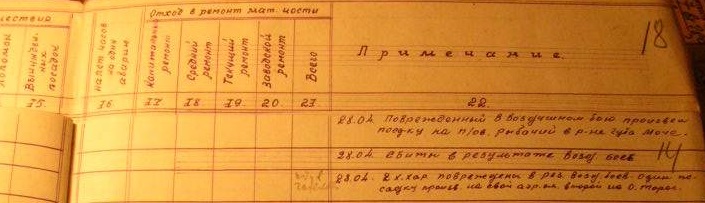 шествия
Отход в ремонт мат. части
18
поломок
Вынужден. ных посадок
налет часов на одну аварию
Капитальный ремонт
Средний ремонт
Текущий ремонт
Заводской ремонт
Всего
Примечание
15. 16 17 18 19. 20. 21. 22.
28.04. Поврежденный в воздушном бою произвел
посадку на п/ов. Рыбачий в р-не губа Моче.
28.04. Сбиты в результате возд. боев 14
28.04. 2 х.хар. повреждены в рез. возд. боев. один по-
садку произв. на свой аэр-м второй на